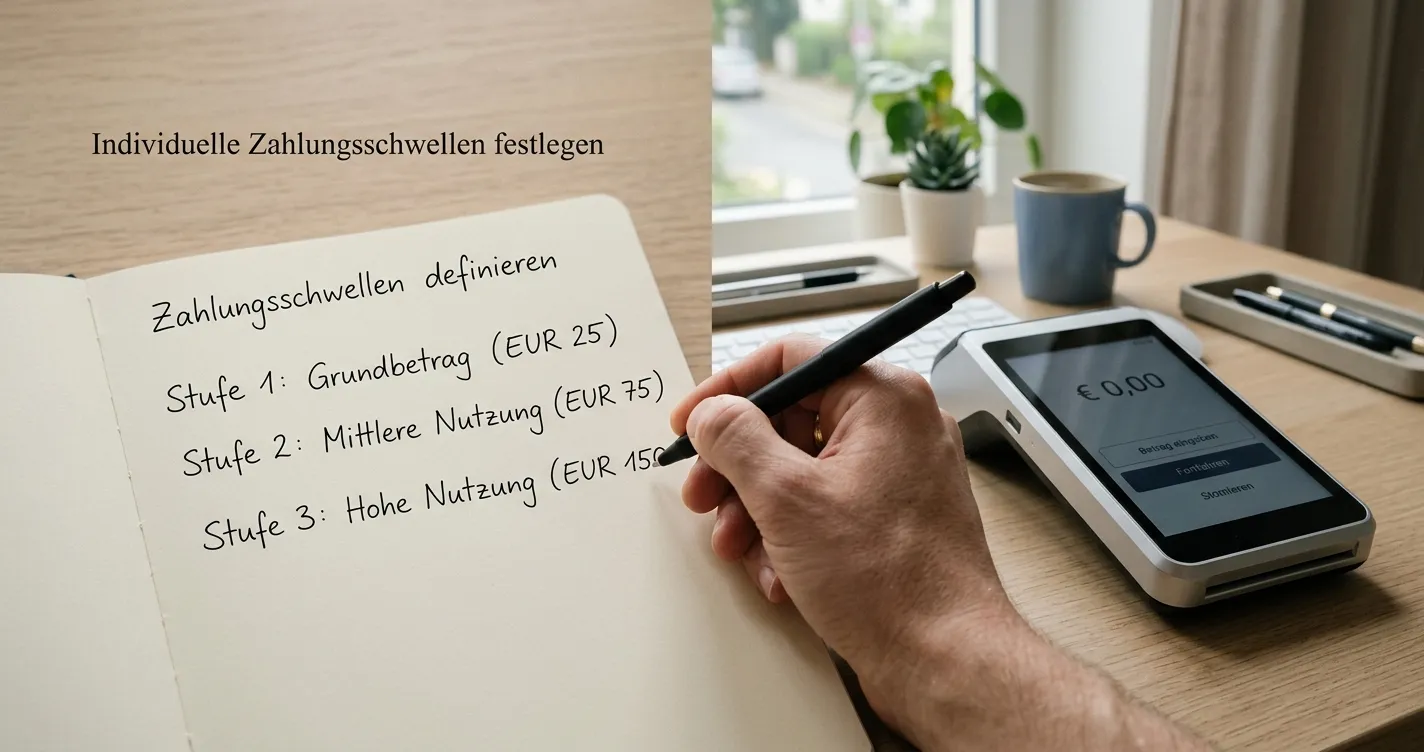 Individuelle Zahlungsschwellen festlegen
Zahlungsschwellen definieren
Stufe 1: Grundbetrag (EUR 25)
Stufe 2: Mittlere Nutzung (EUR 75)
Stufe 3: Hohe Nutzung (EUR 150
€ 0,00
Betrag eingeben
Fortfahren
Stornieren